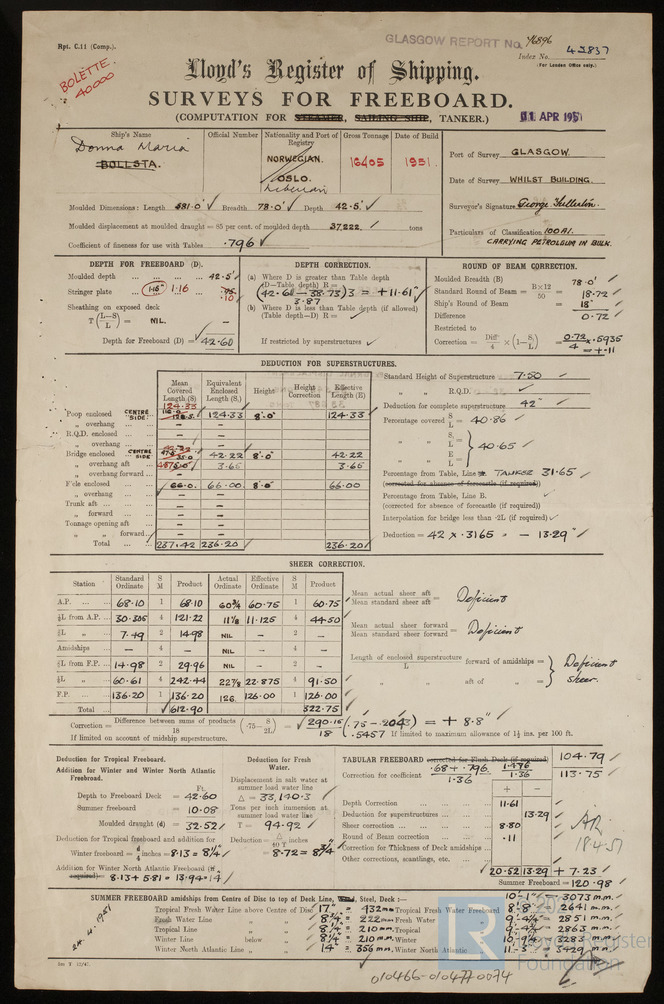 Rpt. C.11 (Comp.).
GLASGOW REPORT No. 76896
Index No. 43837
(For London Office only.)
BOLETTE.
40000
Lloyd's Register of Shipping.
SURVEYS FOR FREEBOARD.
(COMPUTATION FOR STEAMER, SAILING SHIP, TANKER.)
11 APR 1951
Ship's Name
Official Number
Nationality and Port of Registry
Gross Tonnage
Date of Build
Donna Maria
BOLLSTA.
NORWEGIAN.
OSLO.
Liberian
16405
1951.
Port of Survey GLASGOW.
Date of Survey WHILST BUILDING.
Surveyor's Signature George Fullerton
Particulars of Classification 100A1.
CARRYING PETROLEUM IN BULK.
Moulded Dimensions: Length 581.0' Breadth 78.0' Depth 42.5'
Moulded displacement at moulded draught = 85 per cent. of moulded depth 37,222. tons
Coefficient of fineness for use with Tables .796
DEPTH FOR FREEBOARD (D).
Moulded depth ... 42.5'
Stringer plate ... 1.15" 1.16 .10
Sheathing on exposed deck
T (L-S/L) = NIL. -
Depth for Freeboard (D) = 42.60
DEPTH CORRECTION.
(a) Where D is greater than Table depth
(D—Table depth) R =
(42.60 - 38.73) 3 = +11.61"
3.87
(b) Where D is less than Table depth (if allowed)
(Table depth—D) R =
If restricted by superstructures
ROUND OF BEAM CORRECTION.
Moulded Breadth (B) 78.0'
Standard Round of Beam = B×12/50 = 18.72
Ship's Round of Beam = 18"
Difference 0.72
Restricted to
Correction = Diff/4 × (1-S/L) = 0.72/4 × .5935
= +.11
DEDUCTION FOR SUPERSTRUCTURES.
Mean Covered Length (S)
Equivalent Enclosed Length (S₁)
Height
Height Correction
Effective Length (E)
Poop enclosed CENTRE SIDE 124.33 124.33 8'.0" 124.33
" overhang ... - -
R.Q.D. enclosed ... - -
" overhang ... -
Bridge enclosed CENTRE SIDE 42.22 8'.0" 42.22
" overhang aft 3.65 3.65
" overhang forward -
F'cle enclosed 66.0. 66.00 8'.0" 66.00
" overhang ... - -
Trunk aft ... - -
" forward ... - -
Tonnage opening aft - -
" " forward - -
Total ... 237.42 236.20 236.20
Standard Height of Superstructure 7.50
" " R.Q.D. -
Deduction for complete superstructure 42"
Percentage covered S/L = 40.86
" " S₁/L =
" " E/L = 40.65
Percentage from Table, Line TANKER 31.65
(corrected for absence of forecastle (if required))
Percentage from Table, Line B.
(corrected for absence of forecastle (if required))
Interpolation for bridge less than ·2L (if required)
Deduction = 42 × .3165 = - 13.29"
SHEER CORRECTION.
Station
Standard Ordinate
S M
Product
Actual Ordinate
Effective Ordinate
S M
Product
A.P. ... 68.10 1 68.10 60¾ 60.75 1 60.75
⅙L from A.P. ... 30.305 4 121.22 11⅛ 11.125 4 44.50
⅓L " ... 7.49 2 14.98 NIL - 2 -
Amidships ... - 4 - NIL - 4 -
⅓L from F.P. ... 14.98 2 29.96 NIL - 2 -
⅙L " ... 60.61 4 242.44 22⅞ 22.875 4 91.50
F.P. ... 136.20 1 136.20 126. 126.00 1 126.00
Total ... 612.90 322.75
Mean actual sheer aft
Mean standard sheer aft = Deficient
Mean actual sheer forward
Mean standard sheer forward = Deficient
Length of enclosed superstructure/L forward of amidships =
" " aft of " = Deficient sheer.
Correction = Difference between sums of products/18 (·75-S/2L) = 290.15/18 (.75 - .2043) = + 8.8"
.5457
If limited on account of midship superstructure.
If limited to maximum allowance of 1½ ins. per 100 ft.
Deduction for Tropical Freeboard.
Addition for Winter and Winter North Atlantic Freeboard.
Ft.
Depth to Freeboard Deck = 42.60
Summer freeboard = 10.08
Moulded draught (d) = 32.52
Deduction for Tropical freeboard and addition for
Winter freeboard = d/4 inches = 8.13 = 8¼"
Addition for Winter North Atlantic Freeboard (if required) = 8.13 + 5.81 = 13.94 = 14"
Deduction for Fresh Water.
Displacement in salt water at summer load water line
Δ = 33,140.3
Tons per inch immersion at summer load water line
T = 94.92
Deduction = Δ/40 T inches
= 8.72 = 8¾"
TABULAR FREEBOARD corrected for Flush Deck (if required) 104.79
Correction for coefficient .68 + .796 / 1.36 1.476/1.36 113.75
+ -
Depth Correction ... 11.61
Deduction for superstructures ... 13.29
Sheer correction ... 8.80
Round of Beam correction ... .11
Correction for Thickness of Deck amidships ...
Other corrections, scantlings, etc. ...
20.52 13.29 + 7.23
Summer Freeboard = 120.98
18.4.51
SUMMER FREEBOARD amidships from Centre of Disc to top of Deck Line, Wood, Steel, Deck :— 10'-1" = 3073 m.m.
Tropical Fresh Water Line above Centre of Disc 17" = 432 mm Tropical Fresh Water Freeboard 8'-8" = 2641 m.m.
Fresh Water Line " " 8¾" = 222 mm Fresh Water " 9'-4¼" = 2851 m.m.
Tropical Line " " 8¼" = 210 mm Tropical " 9'-4¾" = 2863 m.m.
Winter Line below " 8¼" = 210 mm Winter " 10'-9¼" = 3283 m.m.
Winter North Atlantic Line " " 14" = 356 mm Winter North Atlantic " 11'-3" = 3429 m.m.
1m T 12/47.
LR
Lloyd's Register
Foundation
010466-010477-0074